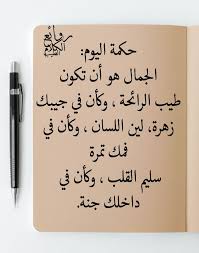 روائع
الكلام
حكمة اليوم:
الجمال هو أن تكون
طيب الرائحة ، وكأن في جيبك
زهرة، لين اللسان ، وكأن في
فمك تمرة
سليم القلب ، وكأن في
داخلك جنة.